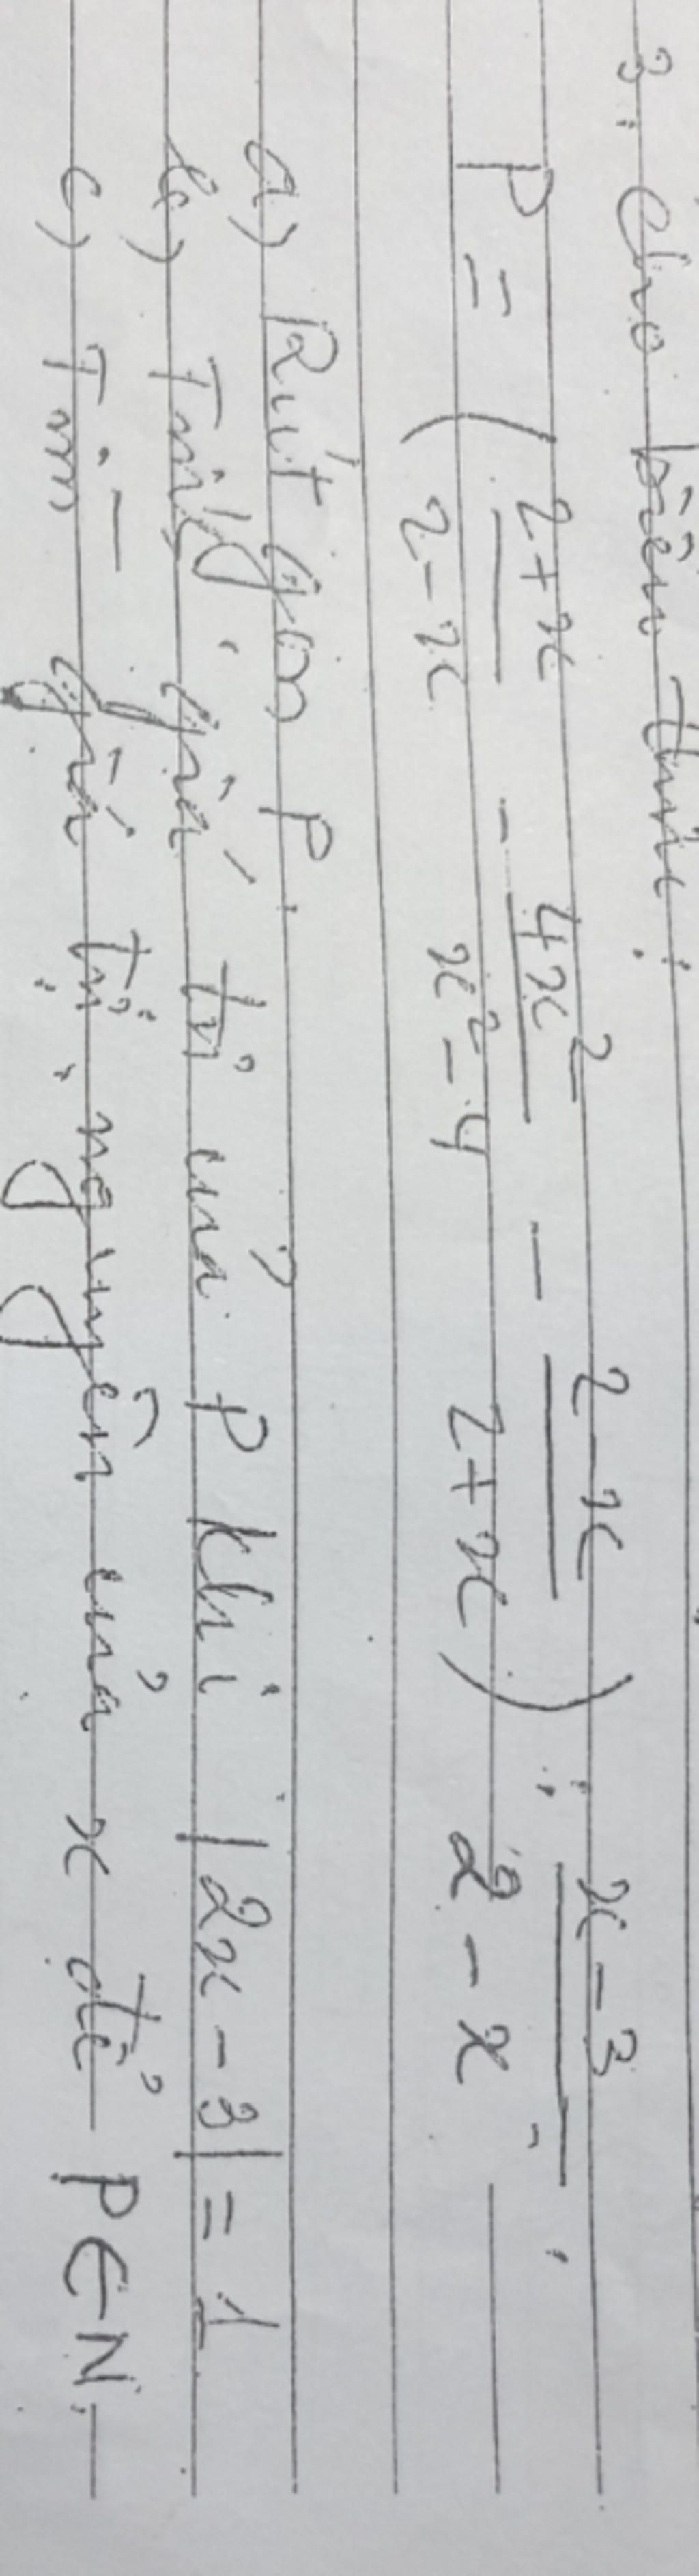 3. Cho biểu thức:
P = (2+x / 2-x - 4x² / x²-4 - 2-x / 2+x) : x-3 / 2-x
a) Rút gọn P.
b) Tính giá trị của P khi |2x-3| = 1
c) Tìm giá trị nguyên của x để P ∈ N.